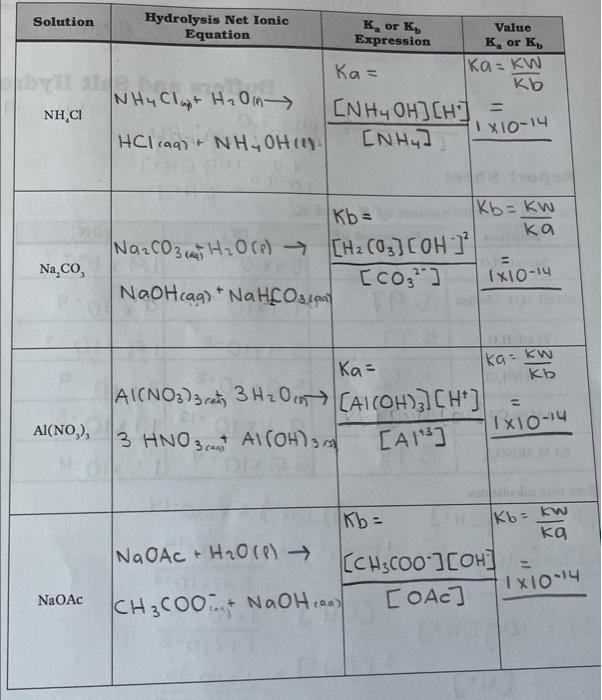 Solution
Hydrolysis Net Ionic Equation
Kₐ or K_b Expression
Value Kₐ or K_b
NH₄Cl
NH4Cl(aq) + H2O(l) →
HCl(aq) + NH4OH(l)
Ka =
[NH4OH][H⁺]
[NH4]
Ka = KW
Kb
=
1x10-14
Na₂CO₃
Na2CO3(aq) + H2O(l) →
NaOH(aq) + NaHCO3(aq)
Kb =
[H2CO3][OH⁻]²
[CO3²⁻]
Kb = KW
Ka
=
1x10-14
Al(NO₃)₃
Al(NO3)3(aq) + 3H2O(l) →
3 HNO3(aq) + Al(OH)3(s)
Ka =
[Al(OH)3][H⁺]
[Al⁺³]
Ka = KW
Kb
=
1x10-14
NaOAc
NaOAc + H2O(l) →
CH3COO⁻ + NaOH(aq)
Kb =
[CH3COO⁻][OH]
[OAc]
Kb = KW
Ka
=
1x10-14